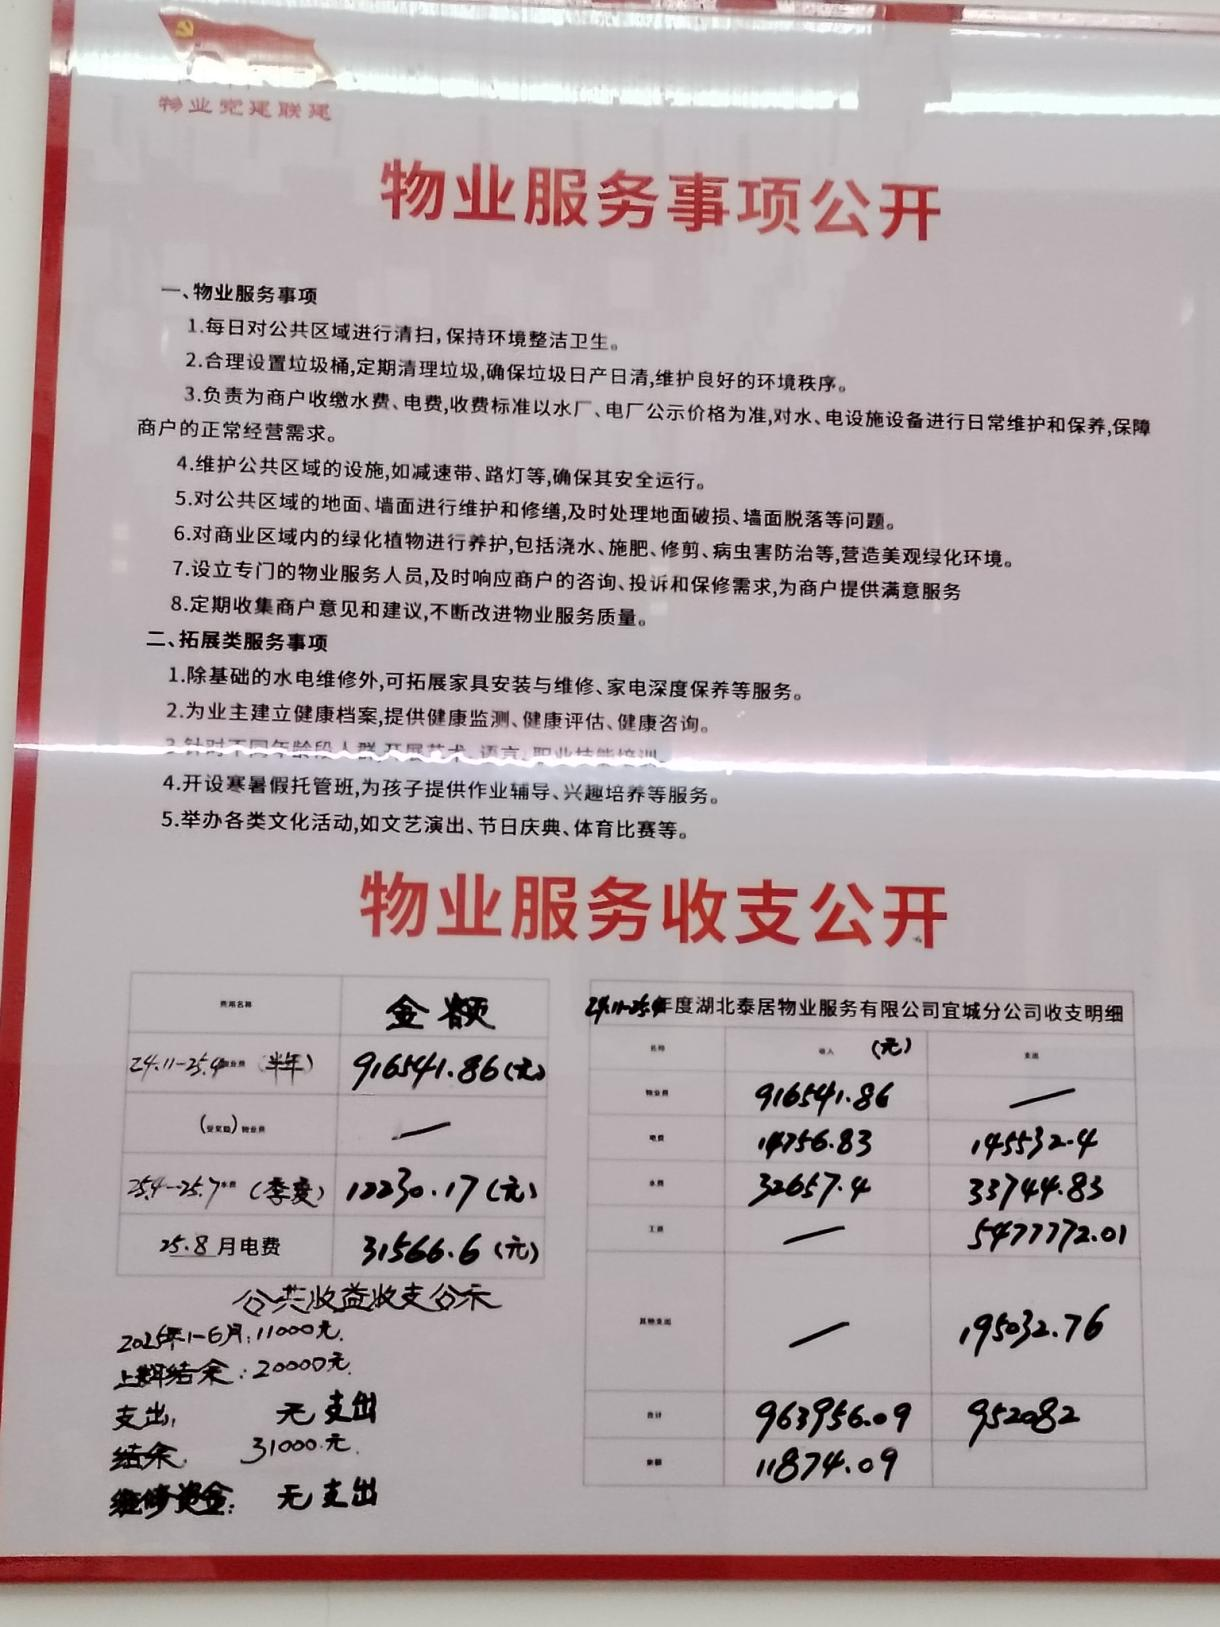 物业党建联建
物业服务事项公开
一、物业服务事项
1.每日对公共区域进行清扫,保持环境整洁卫生。
2.合理设置垃圾桶,定期清理垃圾,确保垃圾日产日清,维护良好的环境秩序。
3.负责为商户收缴水费、电费,收费标准以水厂、电厂公示价格为准,对水、电设施设备进行日常维护和保养,保障
商户的正常经营需求。
4.维护公共区域的设施,如减速带、路灯等,确保其安全运行。
5.对公共区域的地面、墙面进行维护和修缮,及时处理地面破损、墙面脱落等问题。
6.对商业区域内的绿化植物进行养护,包括浇水、施肥、修剪、病虫害防治等,营造美观绿化环境。
7.设立专门的物业服务人员,及时响应商户的咨询、投诉和保修需求,为商户提供满意服务
8.定期收集商户意见和建议,不断改进物业服务质量。
二、拓展类服务事项
1.除基础的水电维修外,可拓展家具安装与维修、家电深度保养等服务。
2.为业主建立健康档案,提供健康监测、健康评估、健康咨询。
3.针对不同年龄段人群,开展艺术、语言、职业技能培训。
4.开设寒暑假托管班,为孩子提供作业辅导、兴趣培养等服务。
5.举办各类文化活动,如文艺演出、节日庆典、体育比赛等。
物业服务收支公开
费用名称 金额
24.11-25.4物业费（半年） 916541.86(元)
物业费 —
25.4-25.7水费（季度） 12230.17(元)
25.8月电费 31566.6(元)
公共收益收支公示
2025年1-6月:11000元.
上期结余:20000元.
支出: 无支出
结余. 31000元.
维修资金: 无支出
24.11-25.4年度湖北泰居物业服务有限公司宜城分公司收支明细
名称 收入 (元) 支出
物业费 916541.86 —
电费 14756.83 145532.4
水费 32657.4 33744.83
工资 — 5477772.01
其他支出 — 195032.76
合计 963956.09 952082
余额 11874.09